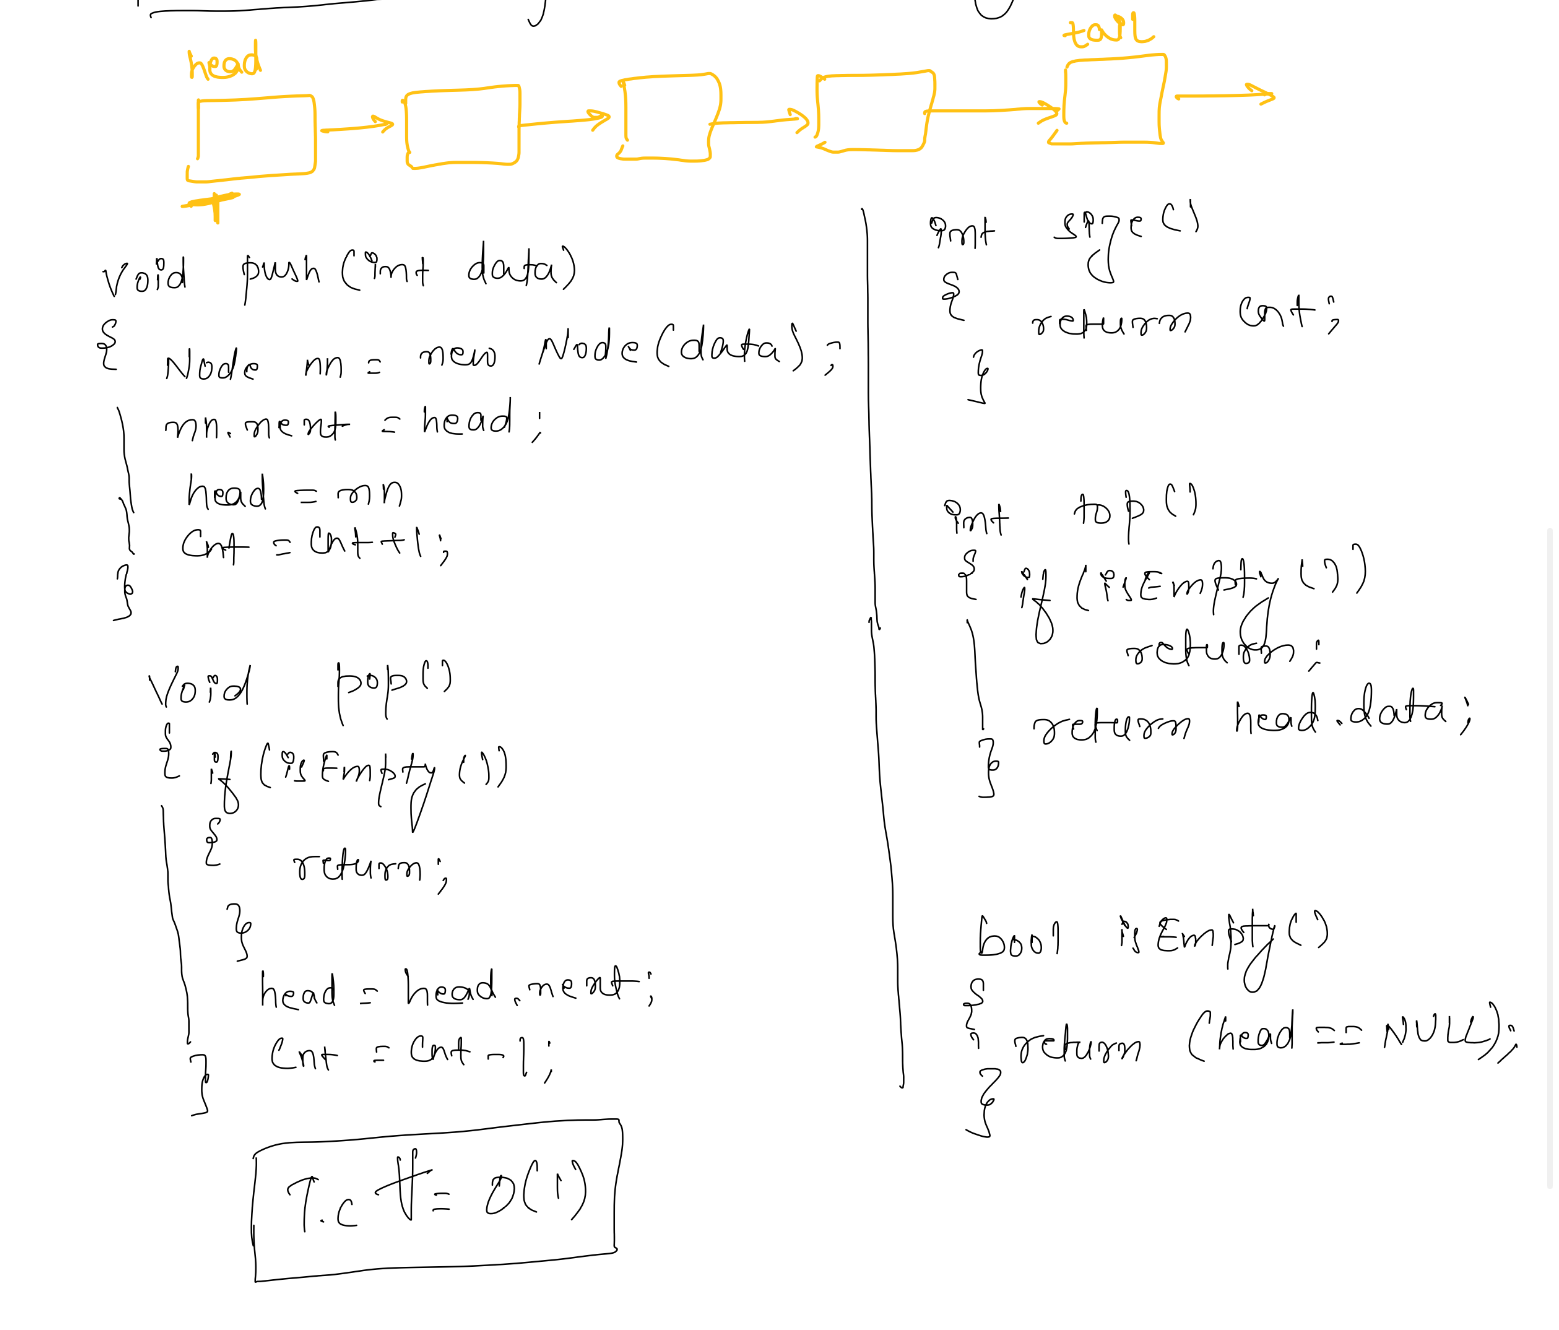 head
tail
T
void push (int data)
{ Node nn = new Node(data);
nn.next = head;
head = nn
Cnt = Cnt+1;
}
void pop()
{ if (isEmpty())
{
return;
}
head = head.next;
Cnt = Cnt-1;
}
T.C ∀ = O(1)
int size()
{
return cnt;
}
int top()
{ if (isEmpty())
return;
return head.data;
}
bool isEmpty()
{
return (head == NULL);
}